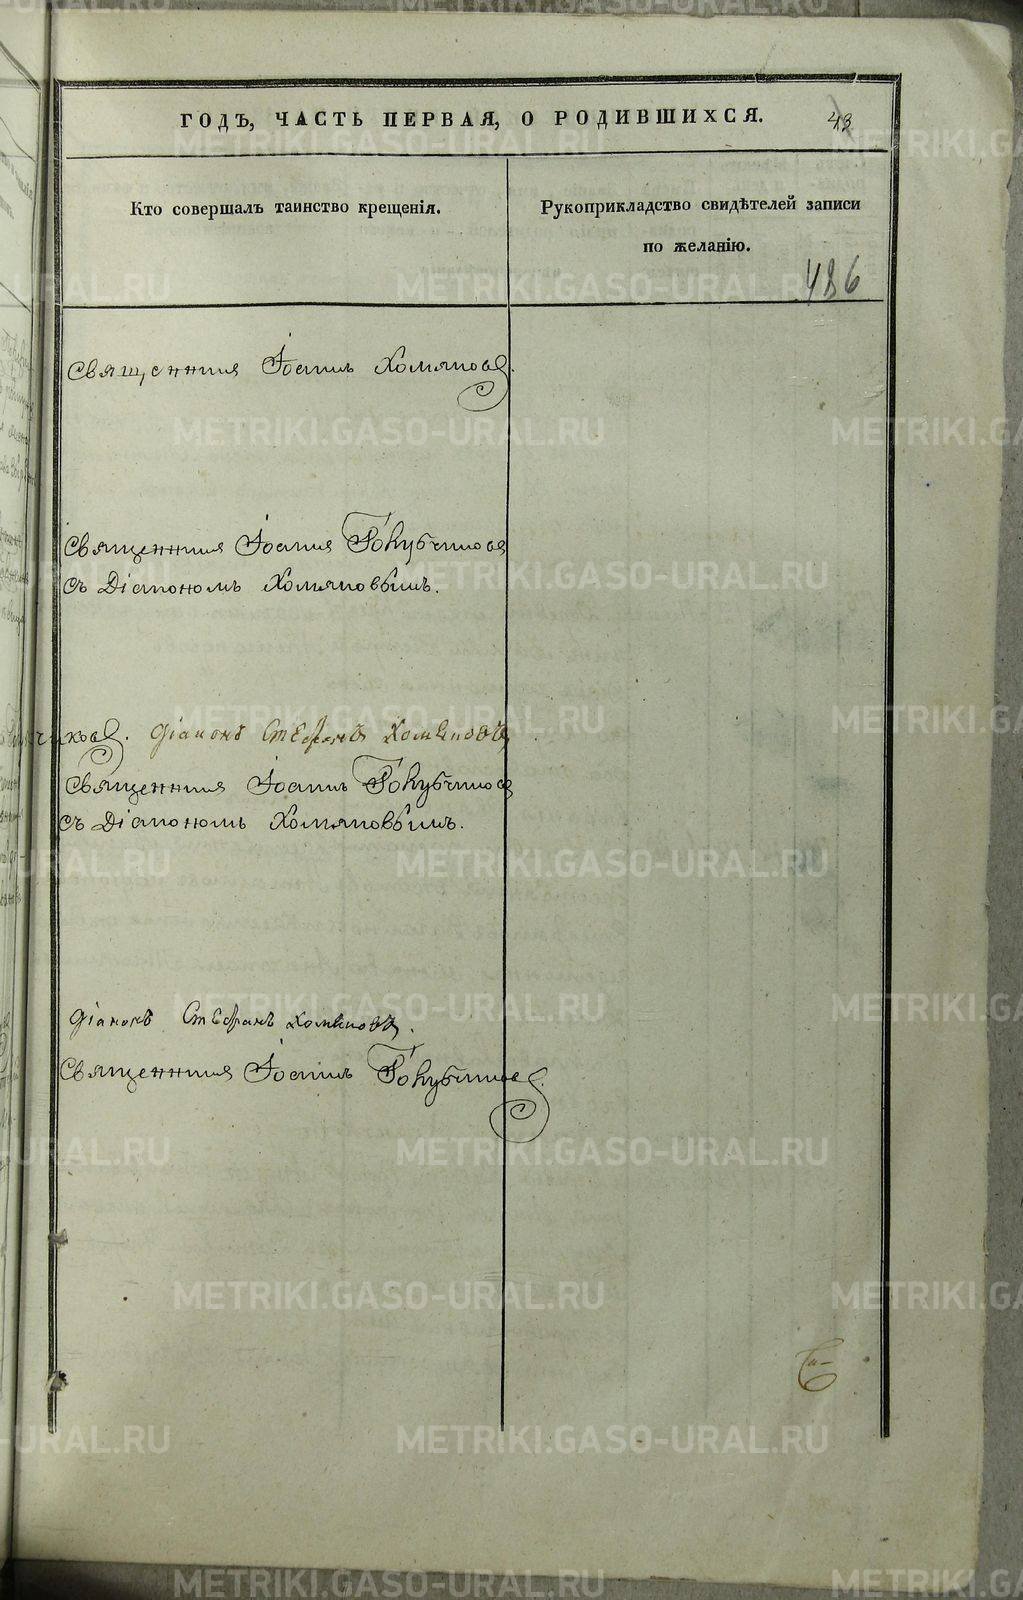 ГОДЪ, ЧАСТЬ ПЕРВАЯ, О РОДИВШИХСЯ.
Кто совершалъ таинство крещенія.
Рукоприкладство свидѣтелей записи
по желанію.
486
Священникъ Іоаннъ Хомяковъ.
Священникъ Іоаннъ Голубчиковъ
съ Діакономъ Хомяковымъ.
Діаконъ Стефанъ Хомяковъ
Священникъ Іоаннъ Голубчиковъ
съ Діакономъ Хомяковымъ.
Діаконъ Стефанъ Хомяковъ.
Священникъ Іоаннъ Голубчиковъ.
METRIKI.GASO-URAL.RU